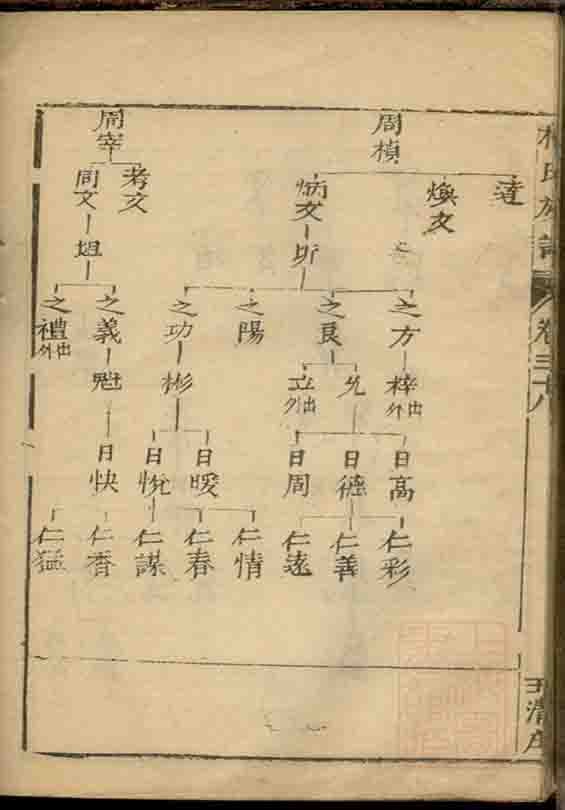 氏族譜
卷三十八
周楨
達
煥文
炳文
圻
之方
之良
之陽
之功
梓
外出
允
立
外出
彬
日高
日德
日周
日暖
日悅
仁彩
仁善
仁遠
仁情
仁春
仁謀
周宰
考文
同文
坦
之義
之禮
外出
魁
日快
仁香
仁猛